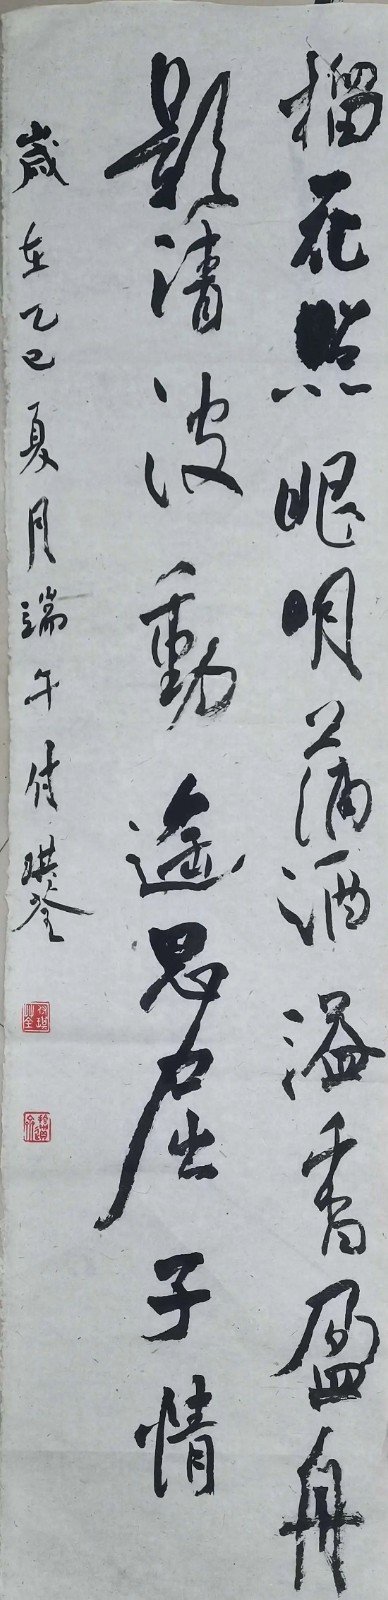 榴花照眼明蒲酒溢香盈舟
影清波動遙思屈子情
歲在乙巳夏月端午付琪荃